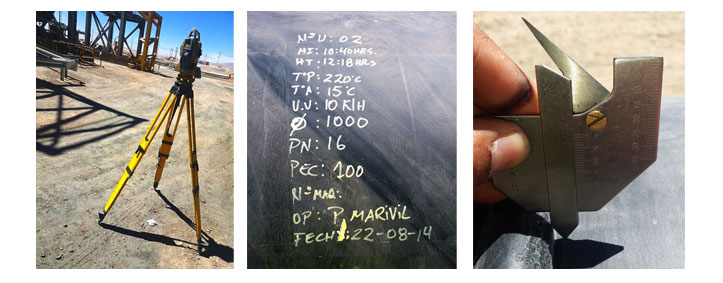 N°U: 02
HI: 10:40HRS.
HT: 12:18HRS
T°P: 220°C
T°A: 15°C
U.V: 10 K/H
Ø: 1000
PN: 16
PEC: 100
N°MAQ:
OP: P. MARIVIL
FECH: 22-08-14